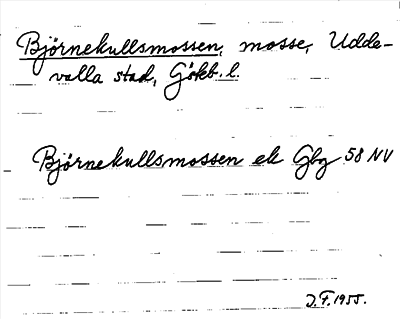 Björnekullsmossen, mosse, Udde-
valla stad, Göteb. l.
Björnekullsmossen ek Gbg 58 NV
D.F. 1955.